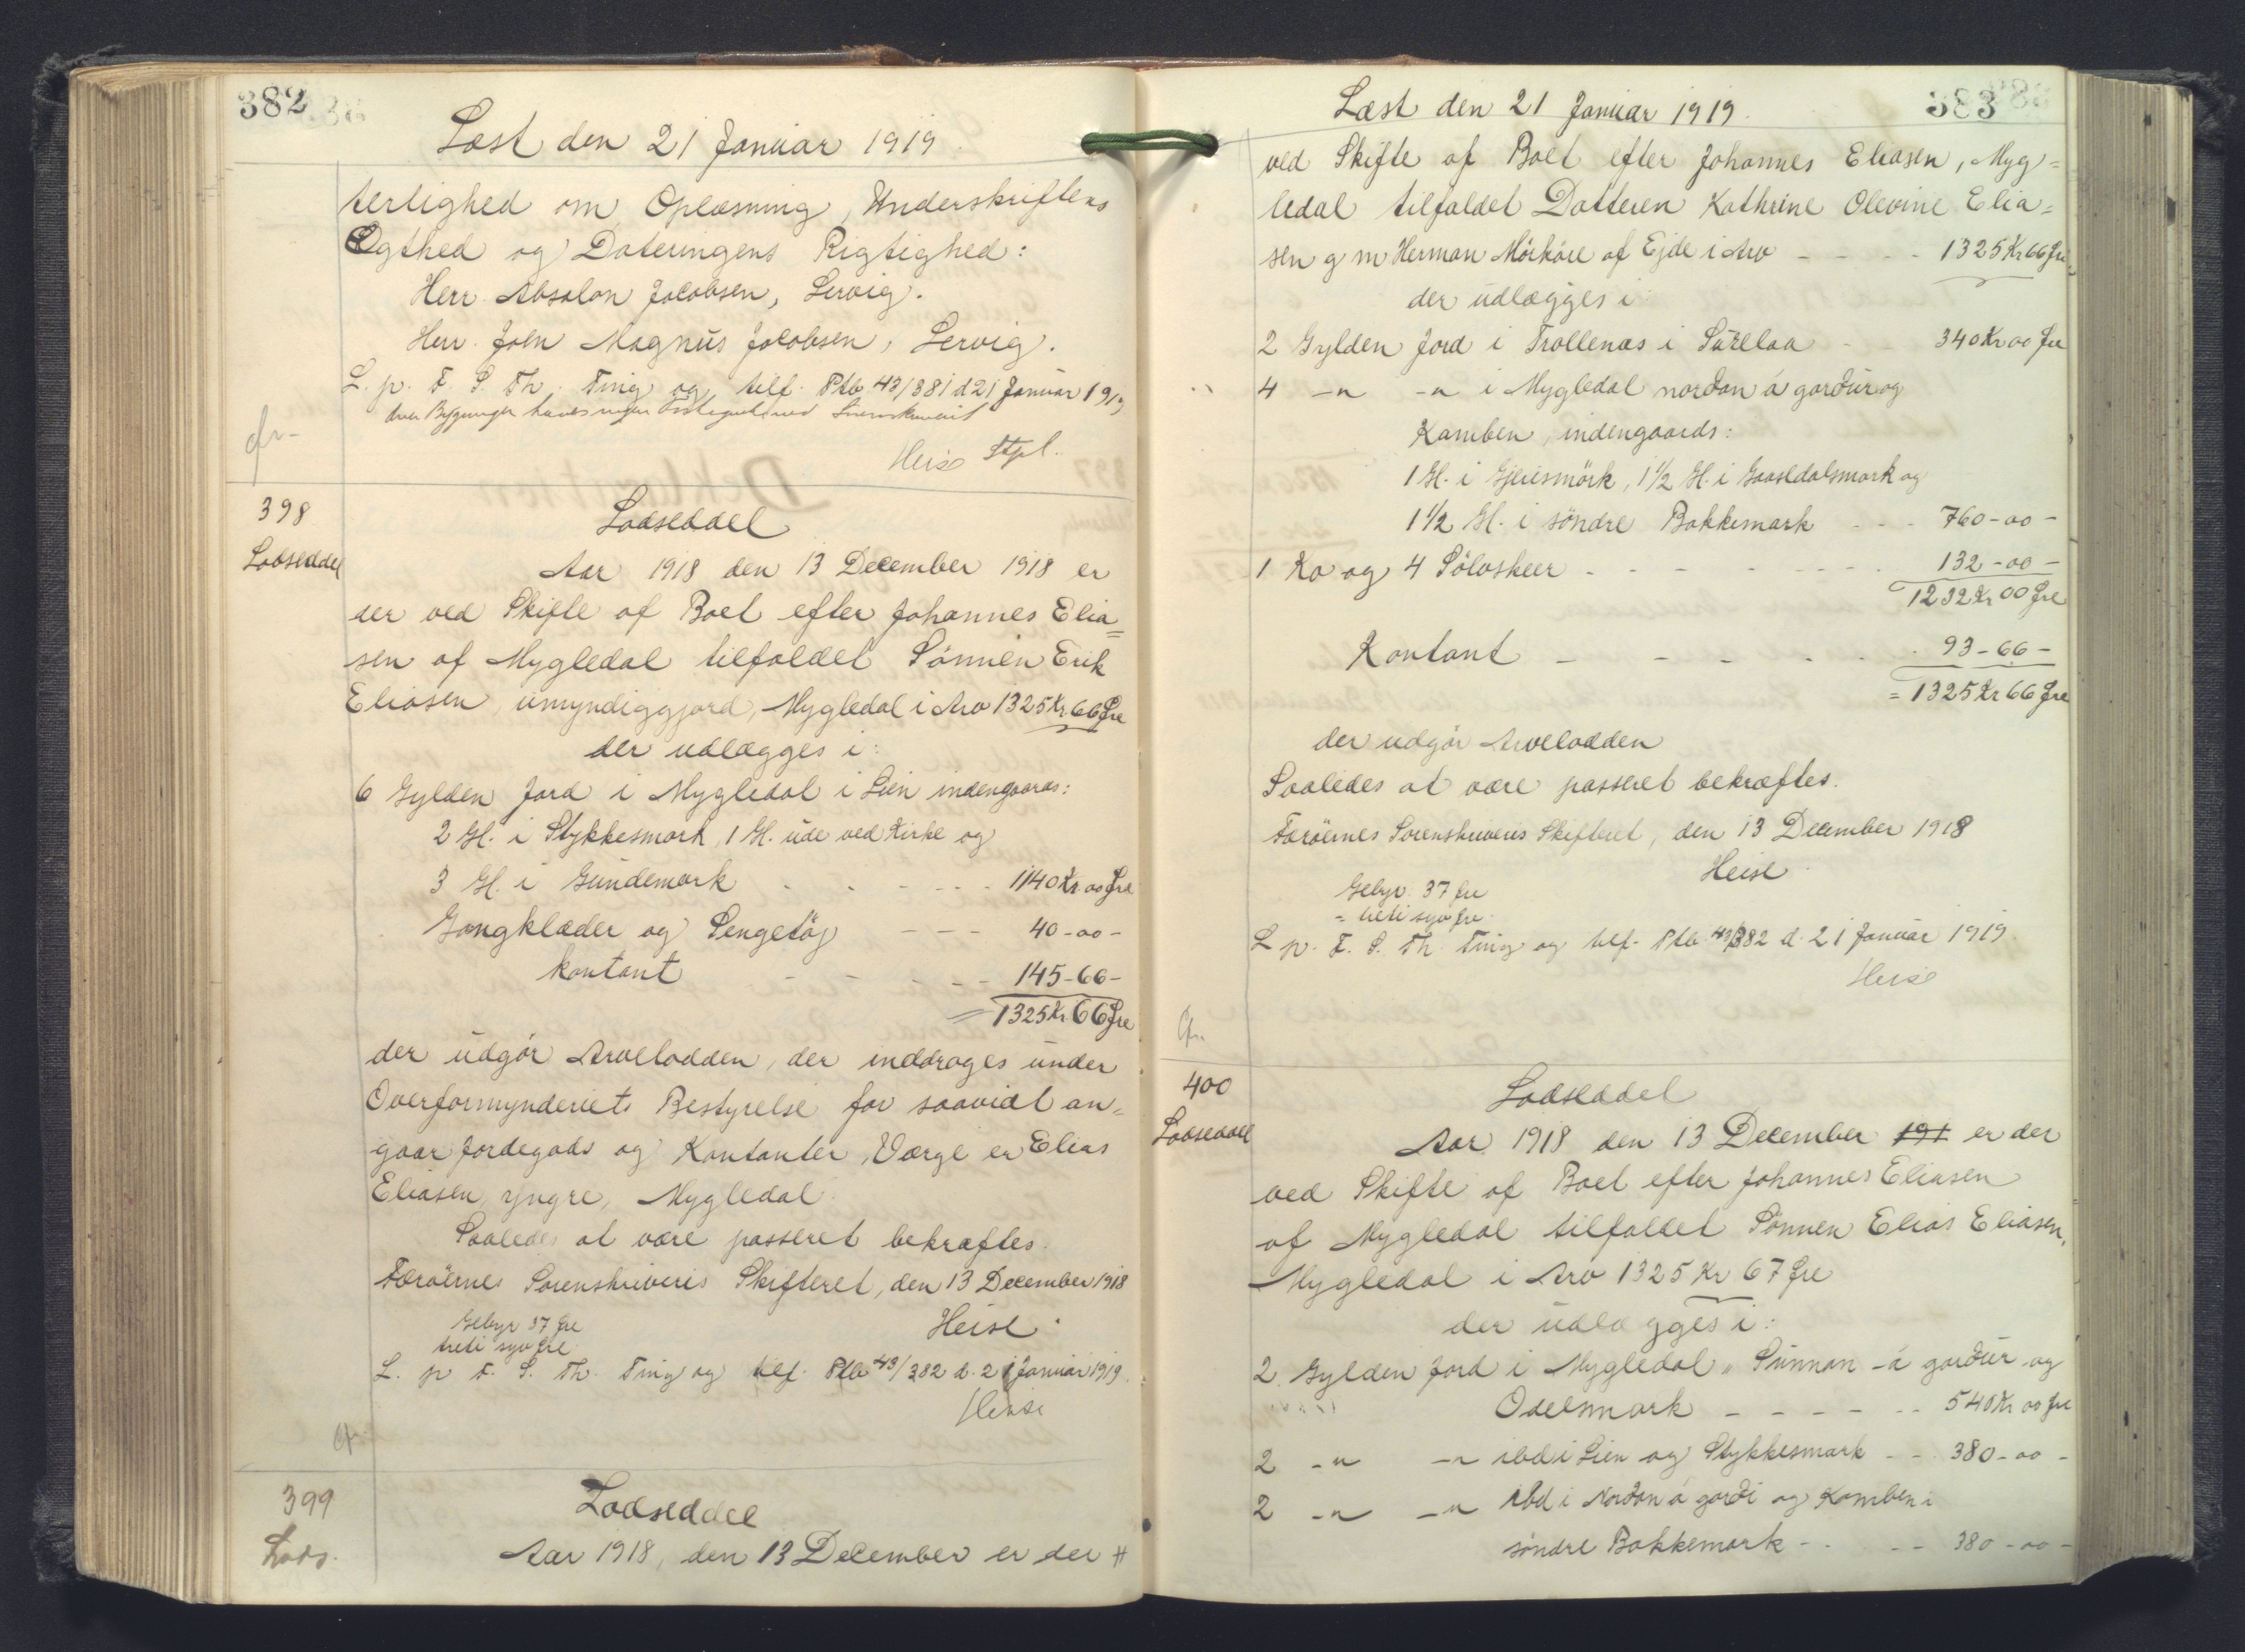 382
Læst den 21 Januar 1919.
terlighed om Oplæsning, Underskriftens
Ægthed og Dateringens Rigtighed:
Herr Absalon Jacobsen, Lervig.
Herr. Joen Magnus Jacobsen, Lervig.
L. p. F. S. Th. Ting og tilf. Ptb 43/381 d 21 Januar 1919
Heise Stpl.
398
Lodseddel
Lodseddel
Aar 1918 den 13 December 1918 er
der ved Skifte af Boet efter Johannes Elia=
sen af Mygledal tilfaldet Sönnen Erik
Eliasen, umyndiggjord, Mygledal i Arv 1325 Kr. 66 Øre
der udlægges i:
6 Gylden Jord i Mygledal i Lien indengaards:
2 Gl. i Stykkesmark, 1 Gl. ude ved Kirke og
3 Gl. i Gundemark - - - - 1140 Kr. 00 Øre
Gangklæder og Sengetöj - - - 40-00-
kontant - - - - 145-66-
= 1325 Kr. 66 Øre
der udgör Arvelodden, der inddrages under
Overformynderiets Bestyrelse for saavidt an=
gaar Jordegods og Kontanter, Værge er Elias
Eliasen, yngre, Mygledal.
Saaledes at være passeret bekræftes.
Færöernes Sorenskriveris Skifteret, den 13 December 1918
Gebyr 37 Øre
treti syv Øre
Heise
L. p F. S. Th. Ting og tilf. Ptb 43/382 d. 21 Januar 1919.
Heise
cfr.
399
Lods.
Lodseddel
Aar 1918, den 13 December er der #
383
Læst den 21 Januar 1919.
ved Skifte af Boet efter Johannes Eliasen, Myg=
ledal tilfaldet Datteren Kathrine Olevine Elia=
sen g m Herman Mörköre af Ejde i Arv - - - - 1325 Kr 66 Øre
der udlægges i
2 Gylden Jord i Trollenæs i - - 340 Kr 00 Øre
4 -"- -"- i Mygledal norðan á garður og
Kamben, indengaards:
1 Gl. i Gjerismörk, 1 1/2 Gl. i Gaasldalsmark og
1 1/2 Gl. i söndre Bakkemark - - - 760-00-
1 Ko og 4 Sölvskeer - - - - - - 132-00-
1232 Kr 00 Øre
Kontant - - - - - 93-66-
= 1325 Kr 66 Øre
der udgör Arvelodden
Saaledes at være passeret bekræftes.
Færöernes Sorenskriveris Skifteret, den 13 December 1918
Heise
Gebyr. 37 Øre
= treti syv Øre.
L p. F. S. Th. Ting og tilf. Ptb. 43/382 d. 21 Januar 1919.
Heise
Cfr.
400
Lodseddel
Lodseddel
Aar 1918 den 13 December 191 er der
ved Skifte af Boet efter Johannes Eliasen
af Mygledal tilfaldet Sönnen Elias Eliasen,
Mygledal i Arv 1325 Kr 67 Øre
der udlægges i:
2 Gylden Jord i Mygledal " Sunnan-á garður og
Odelsmark - - - - - 540 Kr 00 Øre
2 -"- -"- ibd i Lien og Stykkesmark - - 380-00-
2 -"- -"- ibd i Norðan á garði og Kamben i
söndre Bakkemark - - - - 380-00-